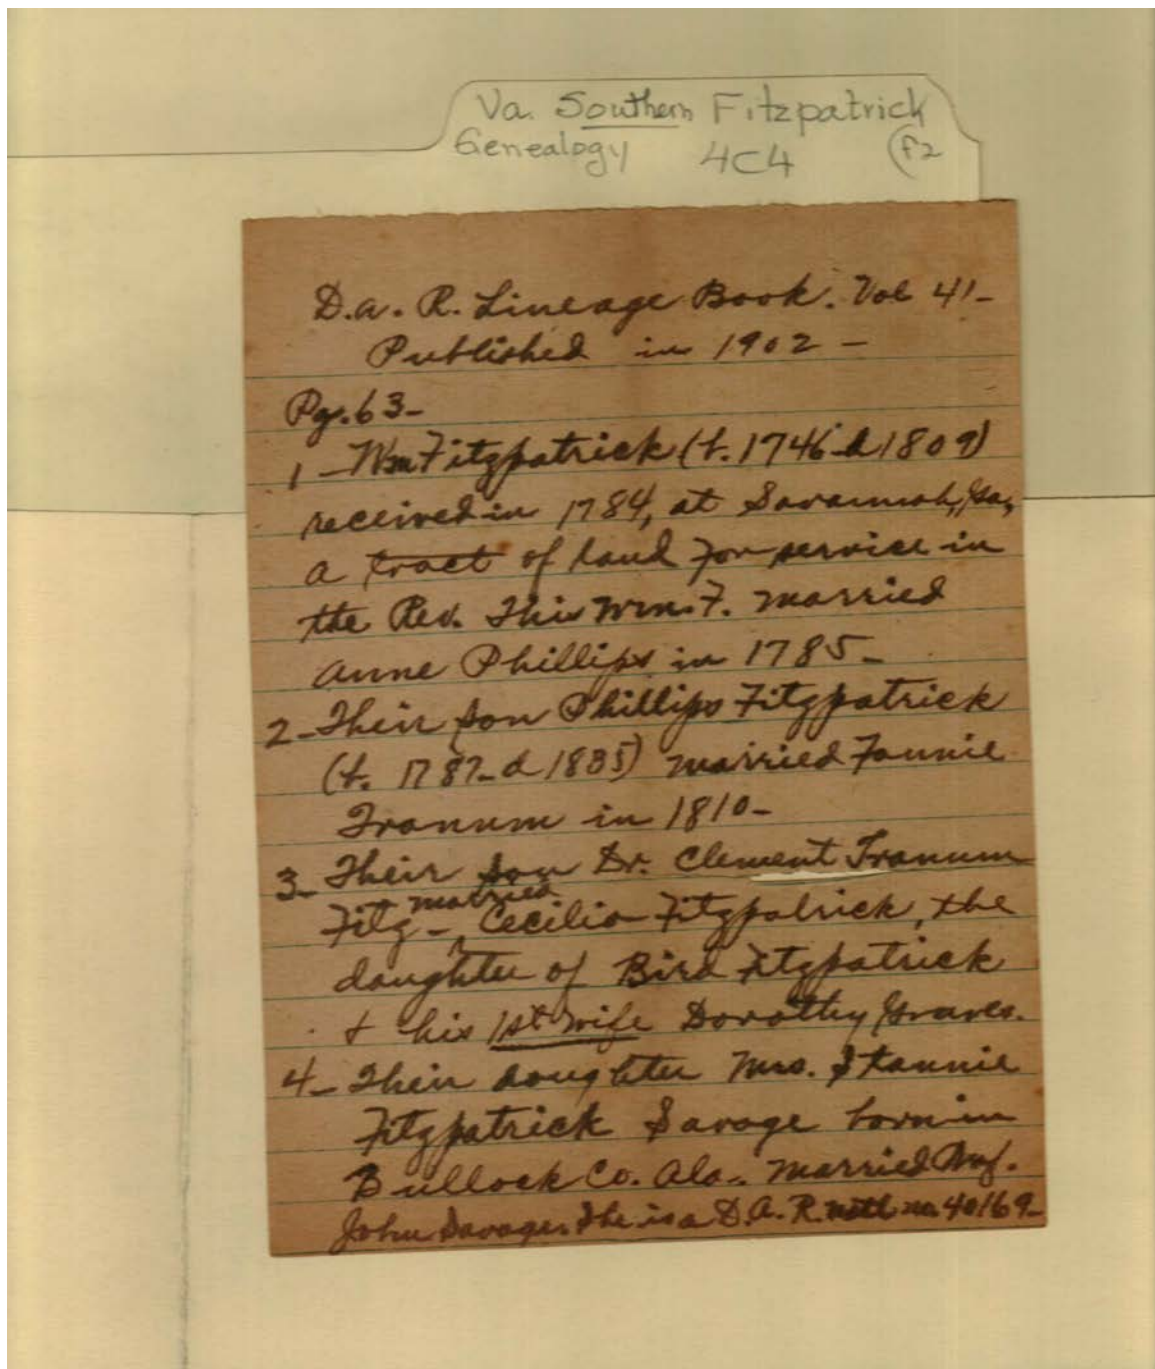 Va. Southern Fitzpatrick
Genealogy 4C4 (F2
D.a. R. Lineage Book. Vol 41-
Published in 1902 -
Pg. 63-
1 - Wm Fitzpatrick (b. 1746-d 1809)
received in 1784, at Savannah, Ga,
a tract of land for service in
the Rev. This Wm. F. married
Anne Phillips in 1785-
2- Their son Phillips Fitzpatrick
(b. 1787-d 1835) married Fannie
Tranum in 1810-
3- Their son Dr. Clement Tranum
Fitz - married Cecilia Fitzpatrick, the
daughter of Bird Fitzpatrick
+ his 1st wife Dorothy Graves.
4- Their daughter Mrs.
Fitzpatrick Savage born in
Bullock Co. Ala. married
John Savage. She is a D.A.R. natl no. 40169-